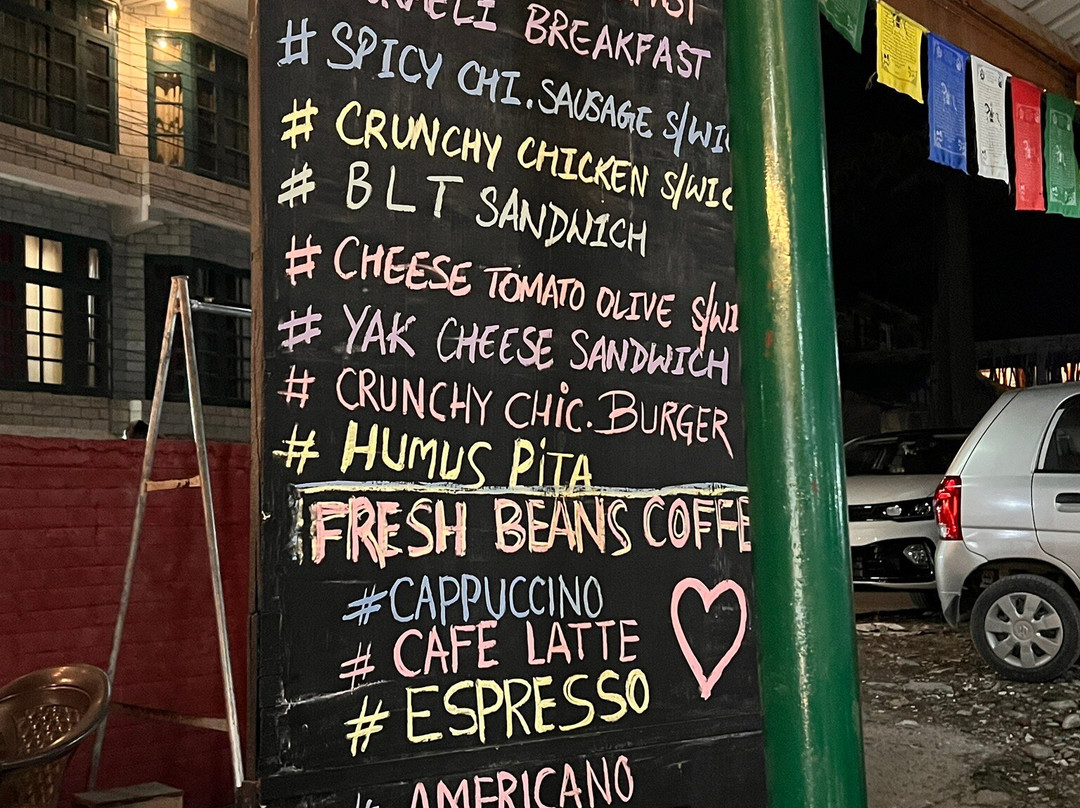 BREAKFAST
# SPICY CHI. SAUSAGE S/WIC
# CRUNCHY CHICKEN S/WIC
# BLT SANDWICH
# CHEESE TOMATO OLIVE S/WI
# YAK CHEESE SANDWICH
# CRUNCHY CHIC. BURGER
# HUMUS PiTA
FRESH BEANS COFFE
# CAPPUCCINO
# CAFE LATTE
# ESPRESSO
# AMERICANO